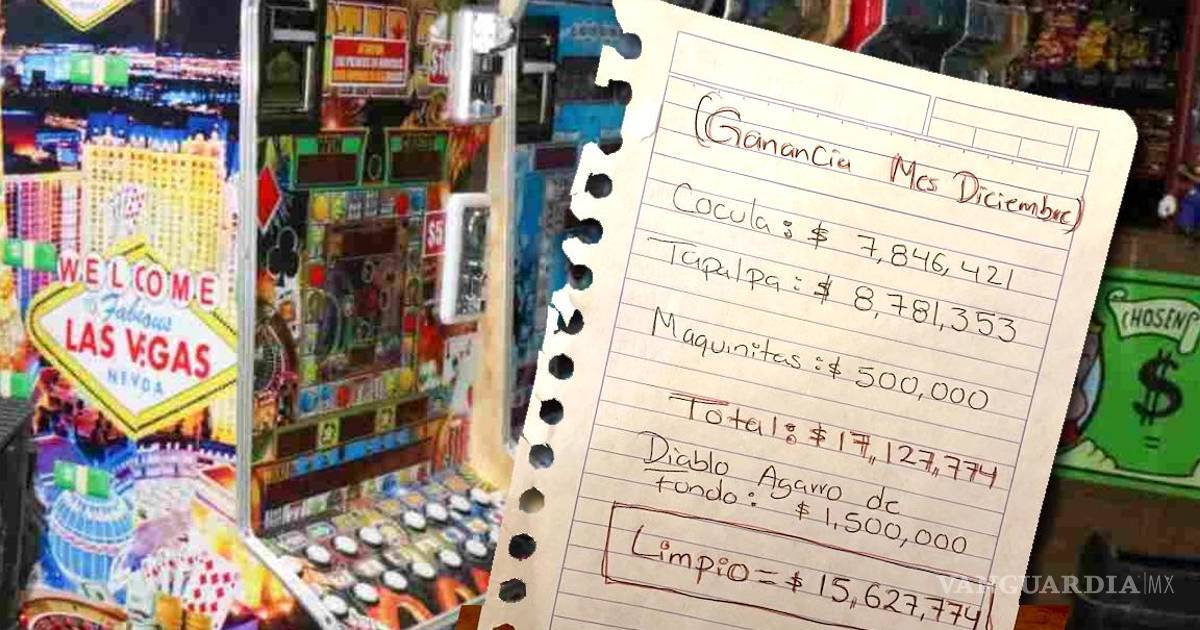 WELCOME
to Fabulous
LAS VEGAS
NEVDA
$5
(Ganancia Mes Diciembre)
Cocula: $ 7,846,421
Tapalpa: $ 8,781,353
Maquinitas: $ 500,000
Total: $ 17,127,774
Diablo Agarro de
fondo: $ 1,500,000
Limpio = $ 15,627,774
CHOSEN
$
VANGUARDIA|MX